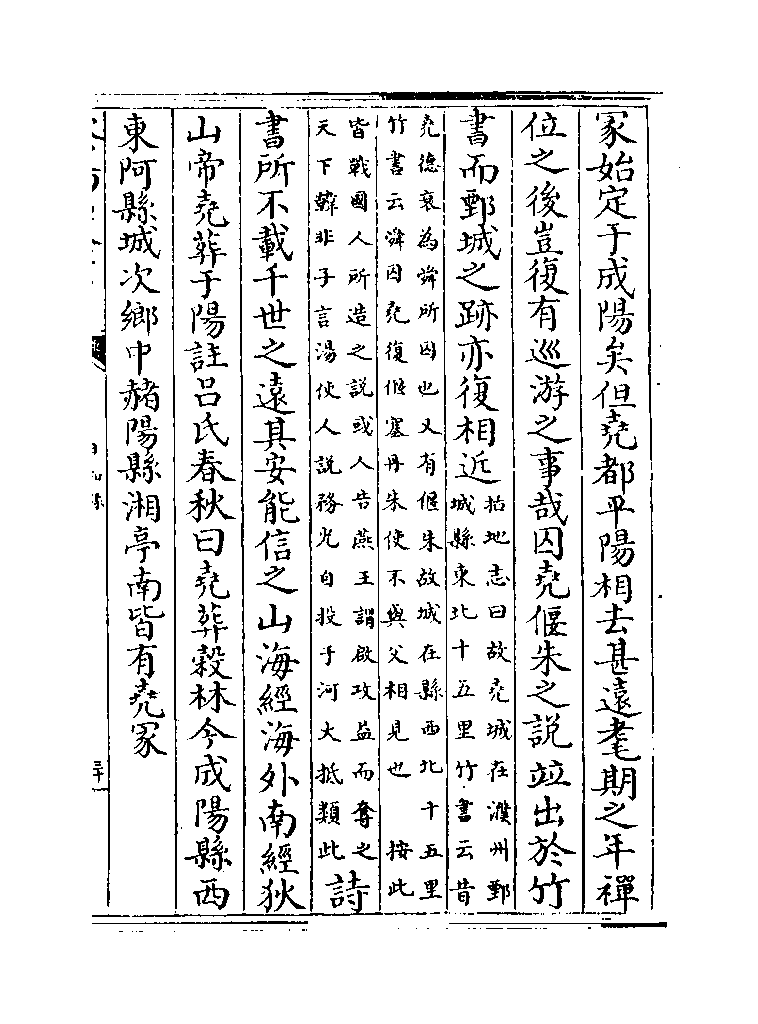 冡始定于成陽矣但堯都平陽相去甚遠耄期之年禪
位之後豈復有巡游之事哉囚堯偃朱之說竝出於竹
書而鄄城之跡亦復相近
括地志曰故堯城在濮州鄄
城縣東北十五里竹書云昔
堯德衰為舜所囚也又有偃朱故城在縣西北十五里
竹書云舜囚堯復偃塞丹朱使不與父相見也 按此
皆戰國人所造之說或人告燕王謂啟攻益而奪之
天下韓非子言湯使人說務光自投于河大抵類此
詩
書所不載千世之遠其安能信之山海經海外南經狄
山帝堯葬于陽註呂氏春秋曰堯葬榖林今成陽縣西
東阿縣城次鄉中赭陽縣湘亭南皆有堯冡